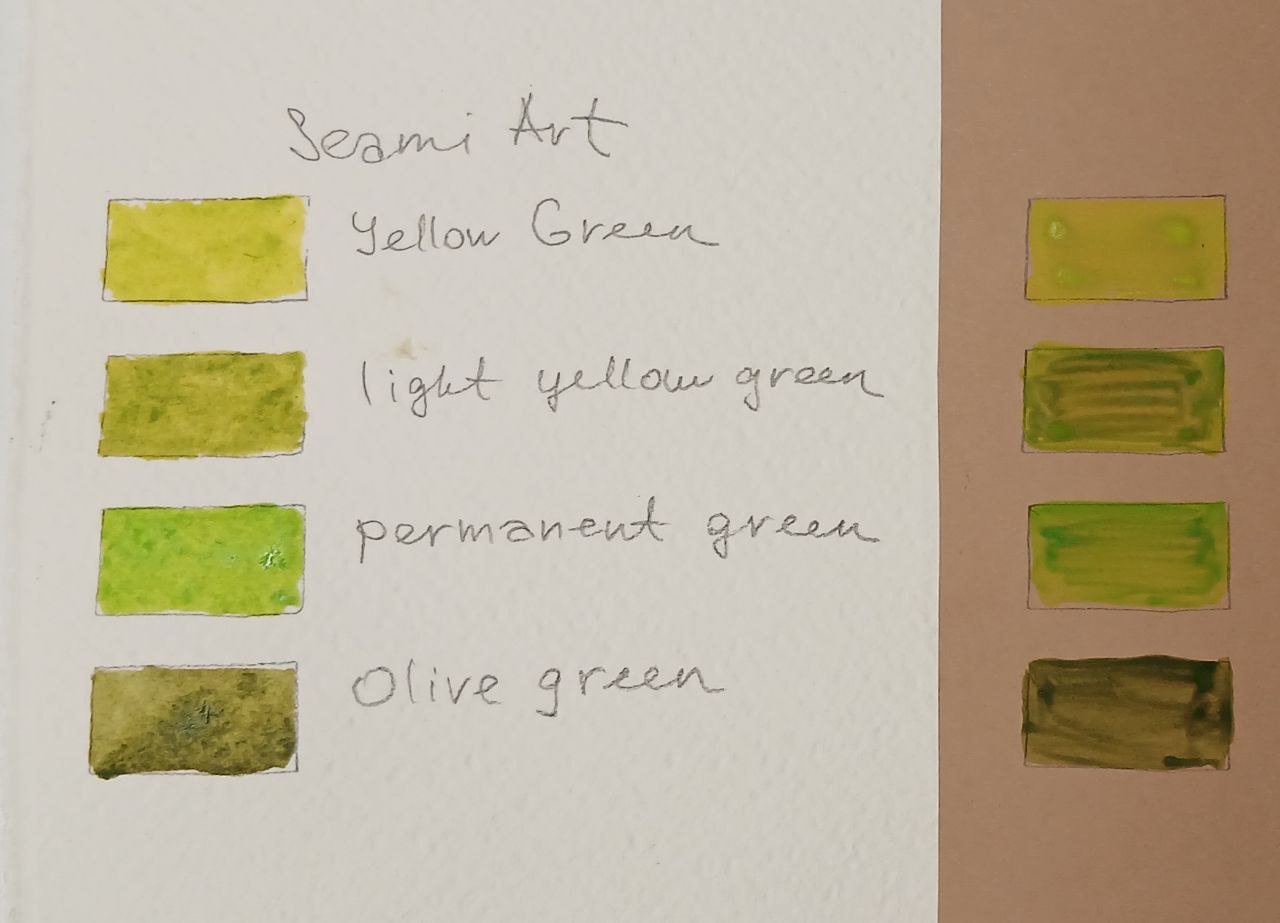 Seami Art
Yellow Green
light yellow green
permanent green
Olive green